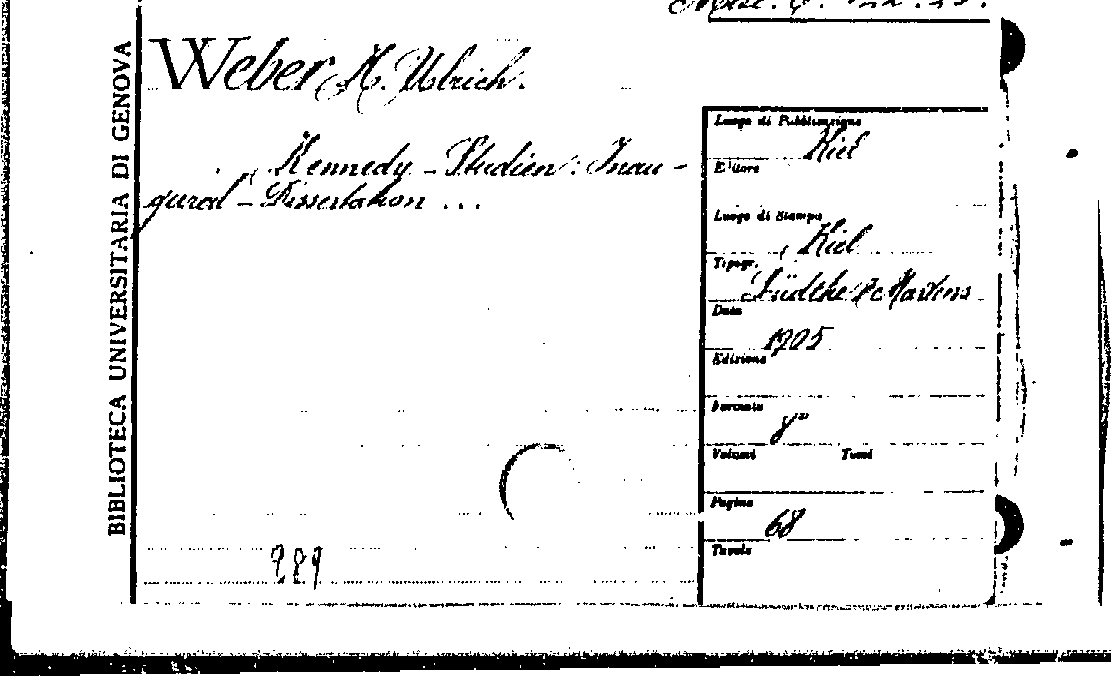 BIBLIOTECA UNIVERSITARIA DI GENOVA
Weber H. Ulrich.
Kennedy-Studien: Inau-
gural-Dissertation ...
Luogo di Pubblicazione
Kiel
Editore
Luogo di Stampa
Kiel
Tipogr.
Lüdtke & Martens
Data
1905
Edizione
Formato
8°
Volumi Tomi
Pagine
68
Tavole
289